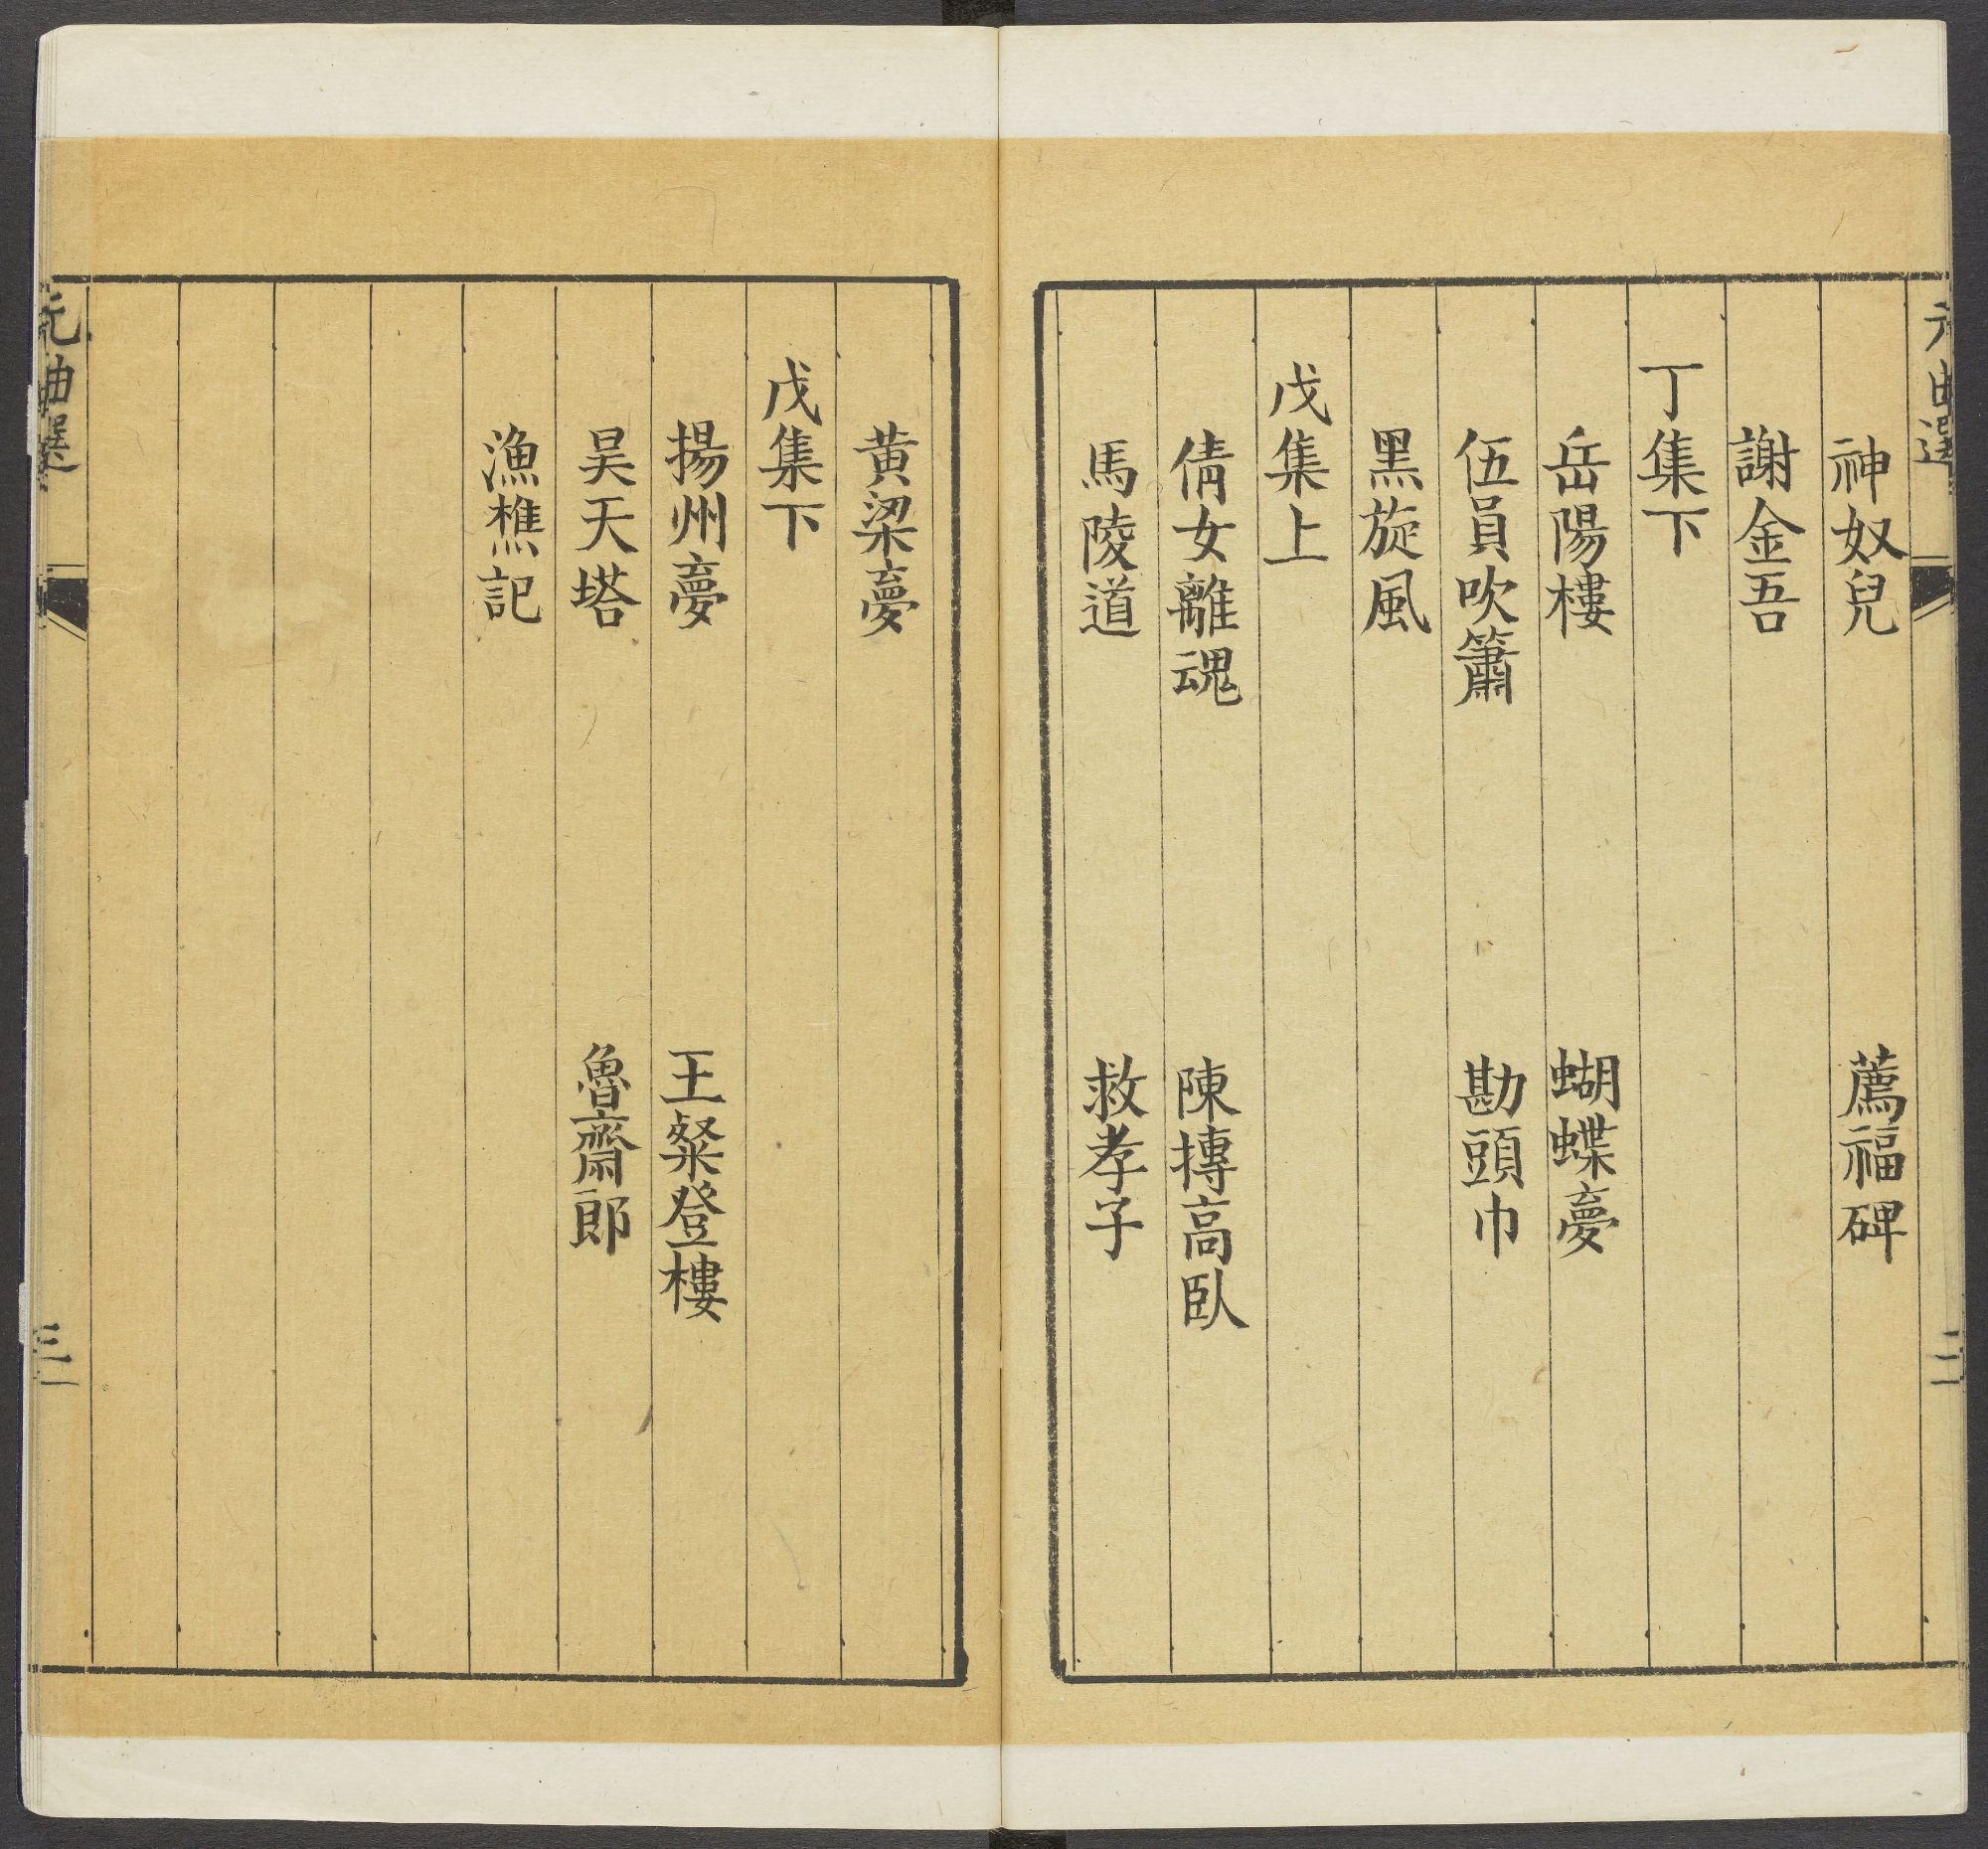 元曲選
二
神奴兒 薦福碑
謝金吾
丁集下
岳陽樓 蝴蝶夢
伍員吹簫 勘頭巾
黑旋風
戊集上
倩女離魂 陳摶高臥
馬陵道 救孝子
黃粱夢
戊集下
揚州夢 王粲登樓
昊天塔 魯齋郎
漁樵記
元曲選
三